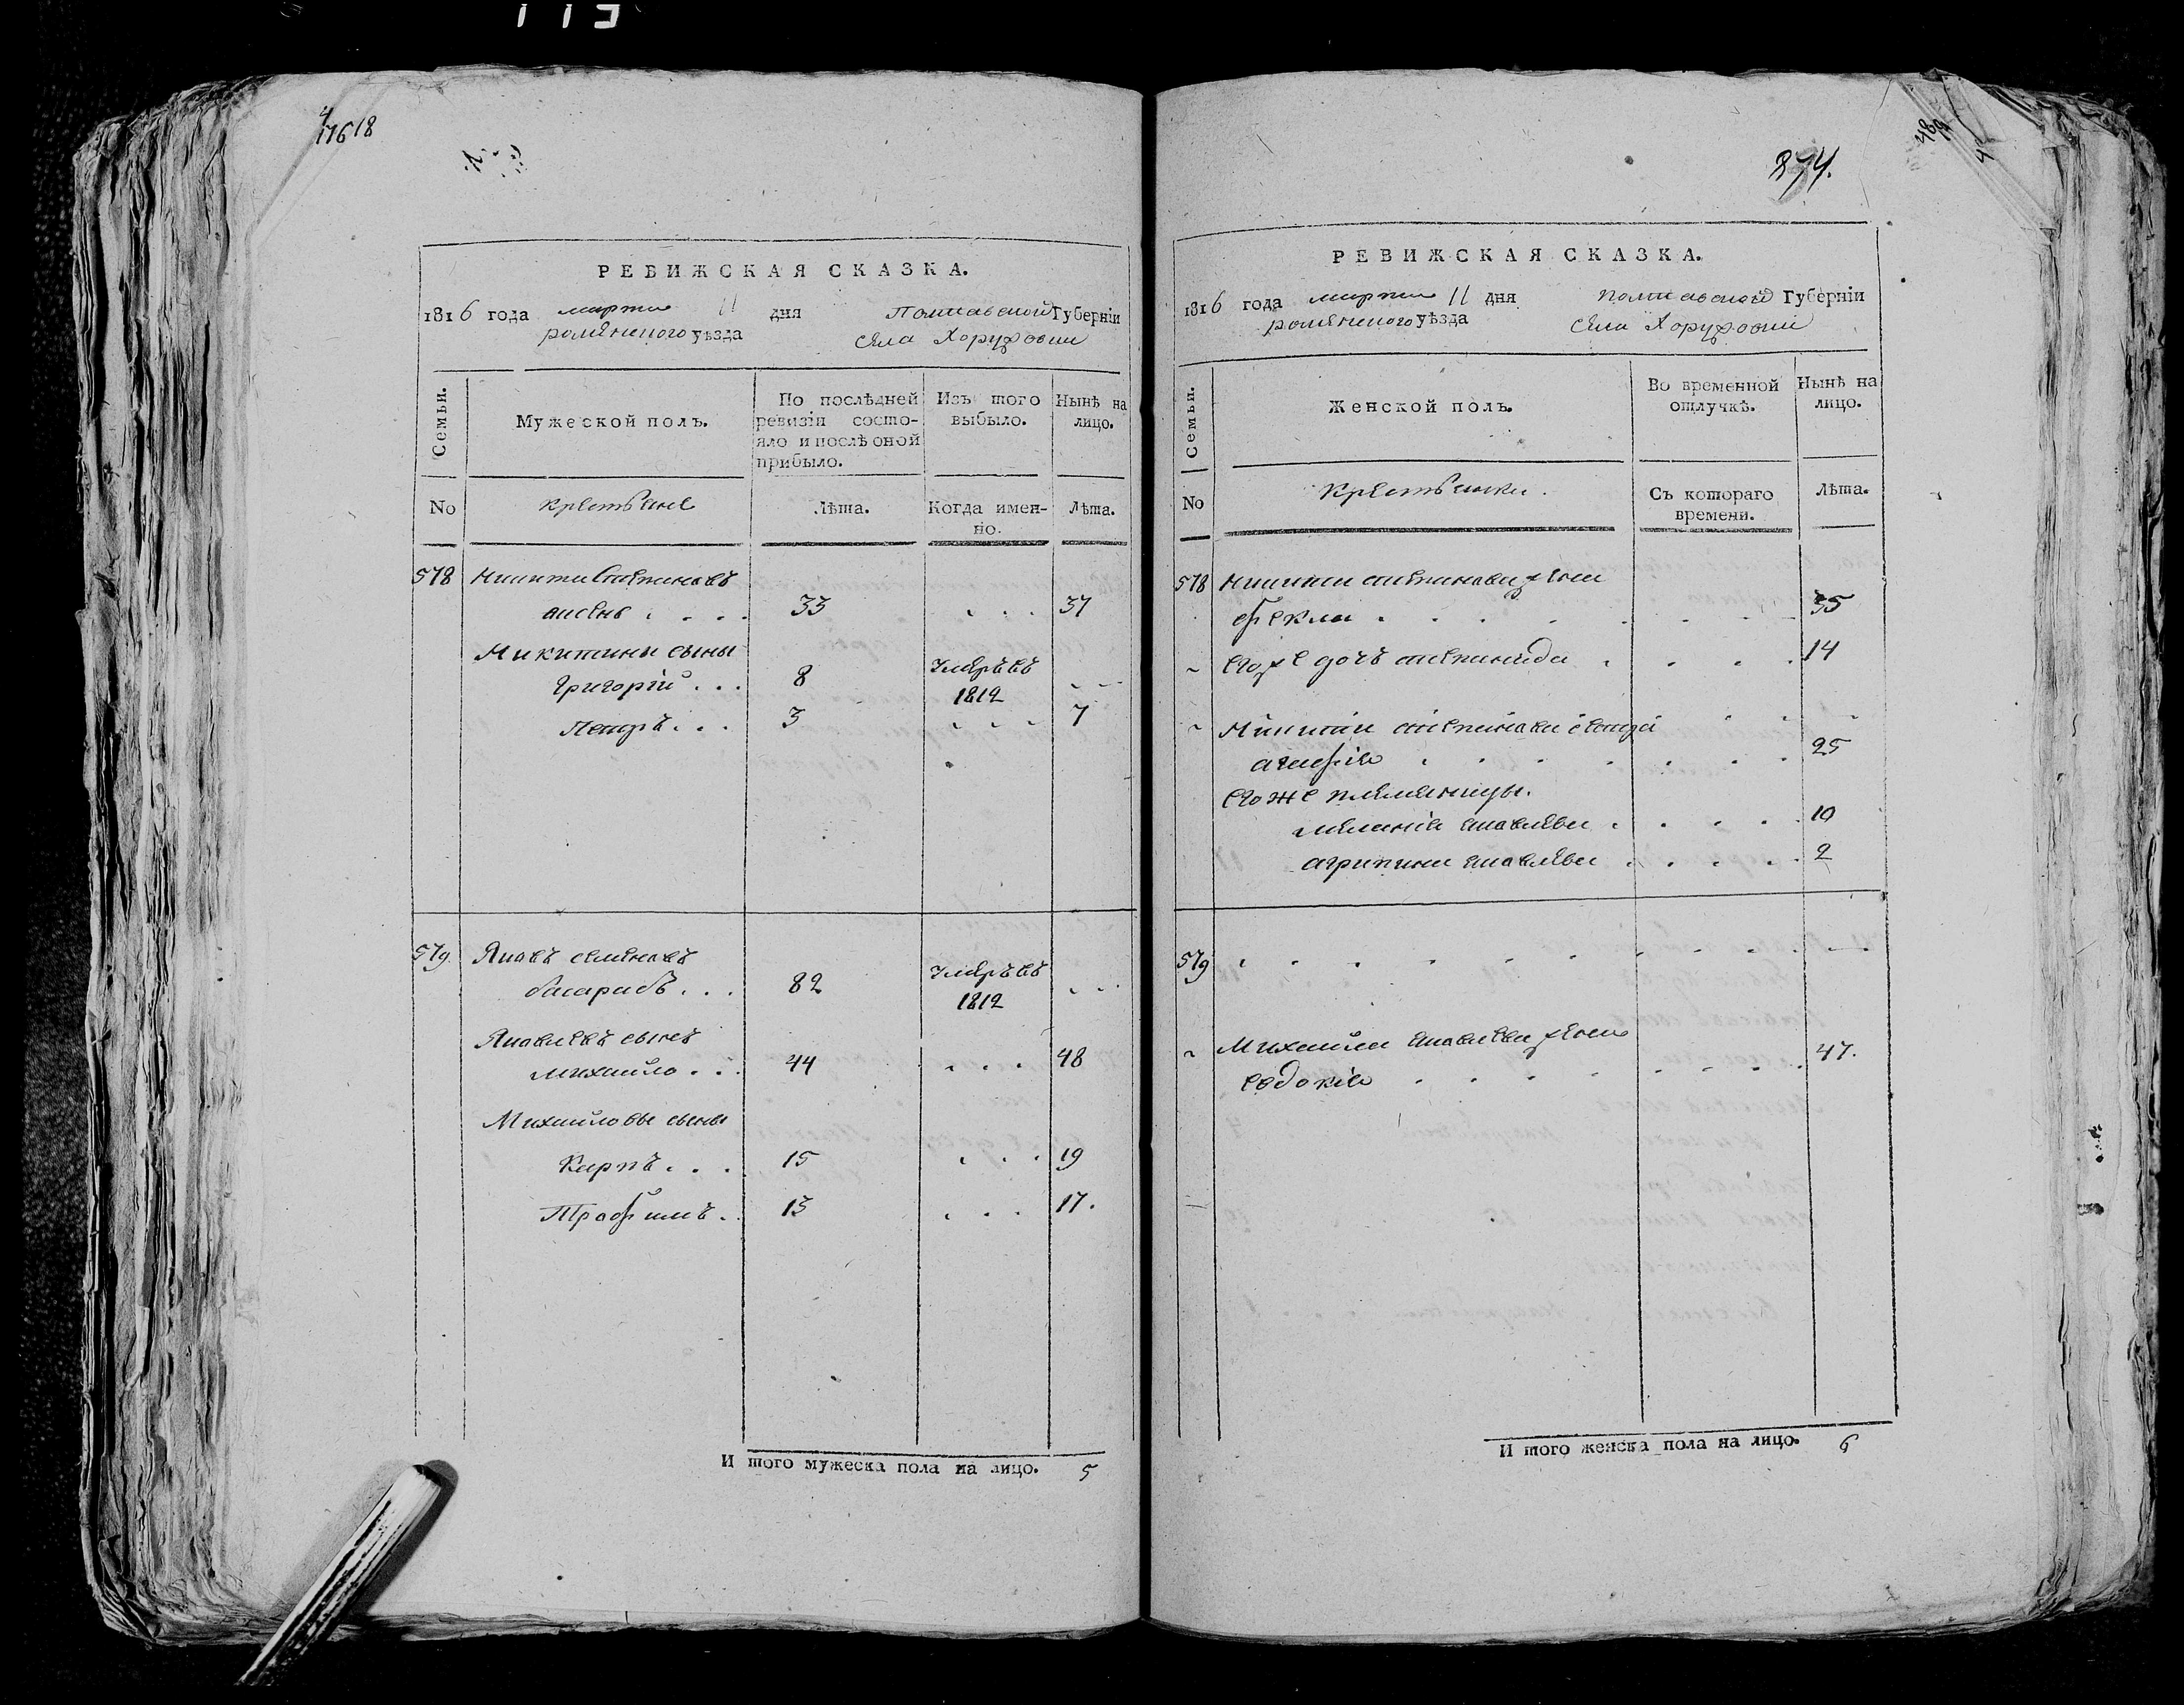 113
17618
РЕВИЖСКАЯ СКАЗКА.
1816 года марта 11 дня Полтавской Губерніи
роменского уѣзда села Хоружовки
Семьи.
Мужеской полъ.
По послѣдней ревизіи состояло и послѣ оной прибыло.
Изъ того выбыло.
Нынѣ на лицо.
No
крестьяне
Лѣта.
Когда именно.
Лѣта.
578 никита степановъ
33 37
Микитины сыны
григорій 8 умеръ въ 1812
петръ 3 7
579 Яковъ семеновъ
82 умеръ въ 1812
Яковлевъ сынъ
михайло 44 48
Михайловы сыны
Карпъ 15 19
Трофимъ 13 17.
И того мужеска пола на лицо. 5
874.
РЕВИЖСКАЯ СКАЗКА.
1816 года марта 11 дня полтавской Губерніи
роменского уѣзда села Хоружовки
Семьи.
Женской полъ.
Во временной отлучкѣ.
Нынѣ на лицо.
No
крестьянки.
Съ котораго времени.
Лѣта.
578 никиты степанова жена
фекла 35
егоже дочь степанида 14
Никиты степанова сестра
агафія 25
егоже племянницы.
меланія яковлева 10
агрипина яковлева 2
579
Михайла яковлева жена
евдокія 47.
И того женска пола на лицо. 6